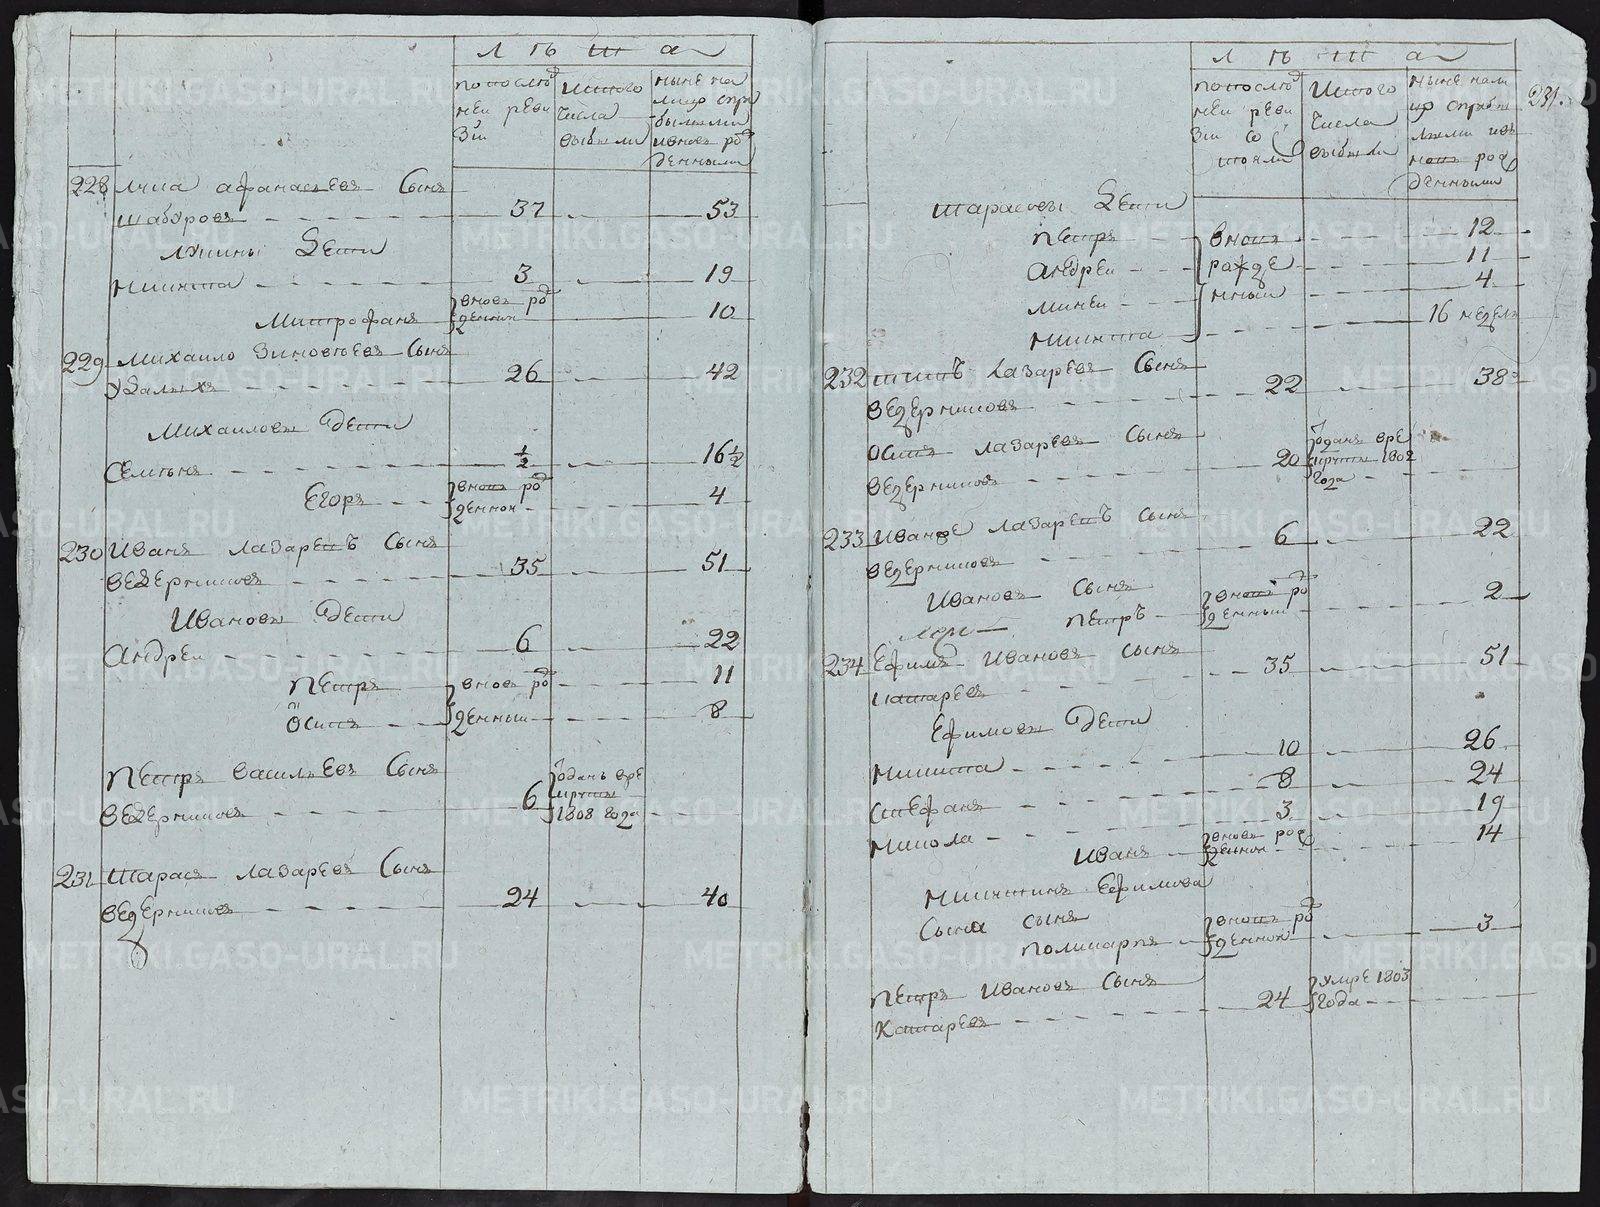 лѣта
по послѣд
ней реви
зіи
Изтого
числа
выбыли
ныне на
лицо спри
былыми
ивновь ро
жденными
228 Лука афанасьевъ Сынъ
шабуровъ 37 53
лукины Дети
никита 3 19
Митрофанъ вновь ро
жденной 10
229 Михайло Зиновьевъ Сынъ
Удалыхъ 26 42
Михайловы Дети
Семионъ 1/2 16 1/2
Егоръ вновь ро
жденной 4
230 Иванъ лазаревъ Сынъ
ведерниковъ 35 51
Ивановы Дети
Андрей 6 22
петръ вновь ро 11
Осипъ жденныи 8
петръ васильевъ Сынъ
ведерниковъ 6 отданъ вре
круты
1808 года
231 тарасъ лазаревъ Сынъ
ведерниковъ 24 40
231.
лѣта
по послѣд
ней реви
зіи со
стояли
Изтого
числа
выбыли
ныне нали
цо сприбы
лыми ивъ
новь рож
денными
тарасовы Дети
петръ вновь 12
андрей рожде 11
миней нныи 4
никита 16 недель
232 титъ лазаревъ Сынъ
ведерниковъ 22 38
Осипъ лазаревъ Сынъ
ведерниковъ 20 отданъ вре
круты 1802
года
233 Иванъ лазаревъ Сынъ
ведерниковъ 6 22
Ивановъ Сынъ
петръ вновь ро
жденныи 2
234 Ефимъ Ивановъ Сынъ
катаревъ 35 51
Ефимовы Дети
никита 10 26
Стефанъ 8 24
никола 3 19
иванъ вновь рож
денной 14
никитинъ Ефимова
Сына Сынъ
поликарпъ вновь ро
жденной 3
петръ Ивановъ Сынъ
Катаревъ 24 умре 1803
года
METRIKI.GASO-URAL.RU